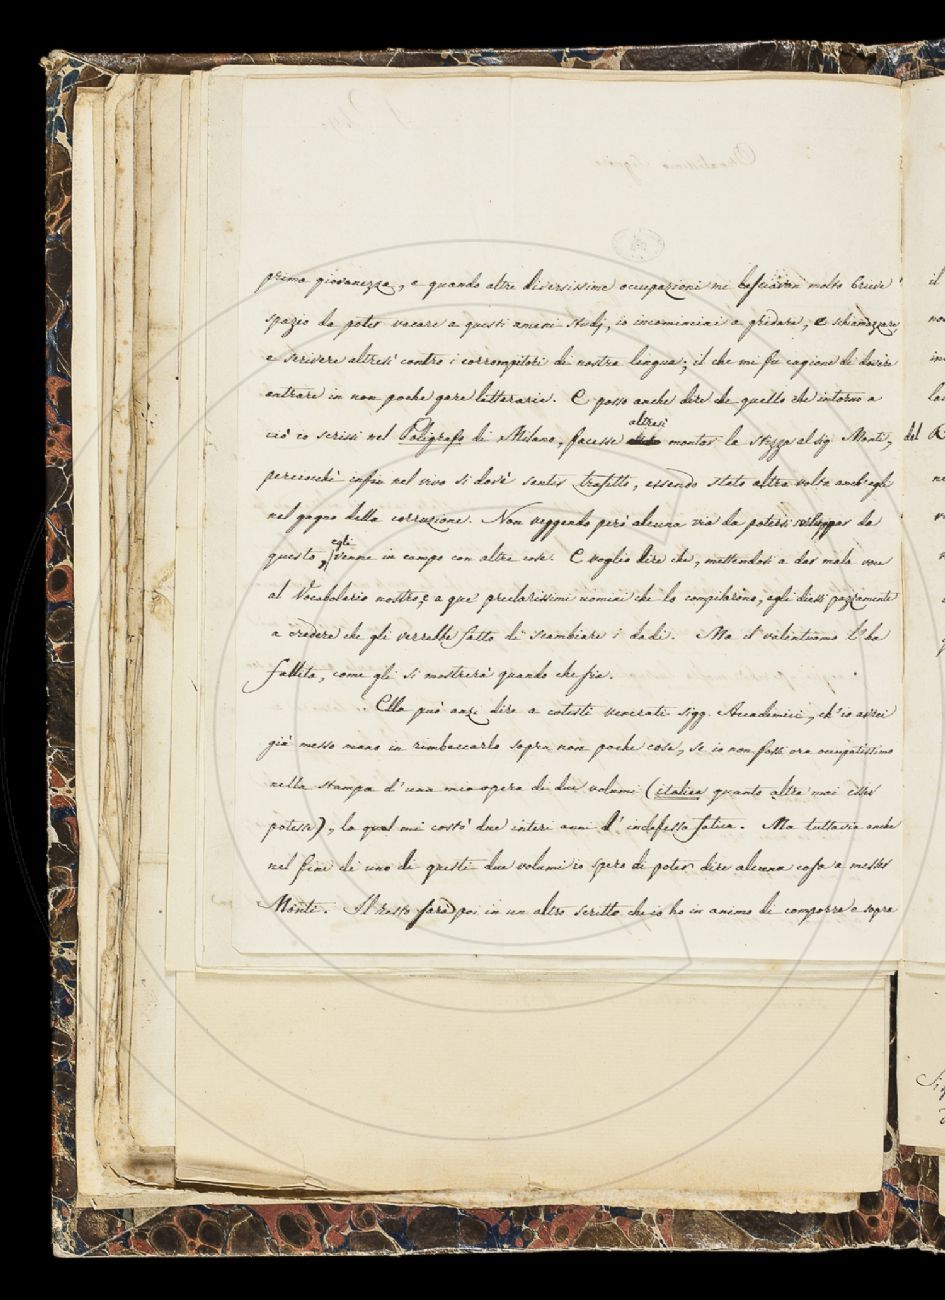 prima giovanezza, e quando altre diversissime occupazioni mi lasciavan molto brieve
spazio da poter vacare a questi ameni studj, io incominciai a gridare, e schiamazzare,
e scrivere altresì contro i corrompitori di nostra lengua; il che mi fu cagione di dovere
entrare in non poche gare letterarie. E posso anche dire che quello che intorno a
ciò io scrissi nel Poligrafo di Milano, facesse altresì montar la stizza al sig. Monti,
perciocchè infin nel vivo si dovè sentir trafitto, essendo stato altra volta anch'egli
nel gagno della corruzione. Non veggendo però alcuna via da potersi sviluppar da
questo, egli venne in campo con altre cose. E voglio dire che, mettendosi a dar mala voce
al Vocabolario nostro, e a que' preclarissimi uomini che lo compilarono, egli diessi pazzamente
a credere che gli verrebbe fatto di scambiare i dadi. Ma il valentuomo l'ha
fallita, come gli si mostrerà quando che sia.
Ella può anzi dire a cotesti venerati sigg. Accademici, ch'io avrei
già messo mano in rimbeccarlo sopra non poche cose, se io non fossi ora occupatissimo
nella stampa d'una mia opera di due volumi (italica quanto altra mai esser
potesse), la qual mi costò due interi anni d'indefessa fatica. Ma tuttavia anche
nel fine di uno di questi due volumi io spero di poter dire alcuna cosa a messer
Monti. Il resto farò poi in un altro scritto che io ho in animo di comporre sopra